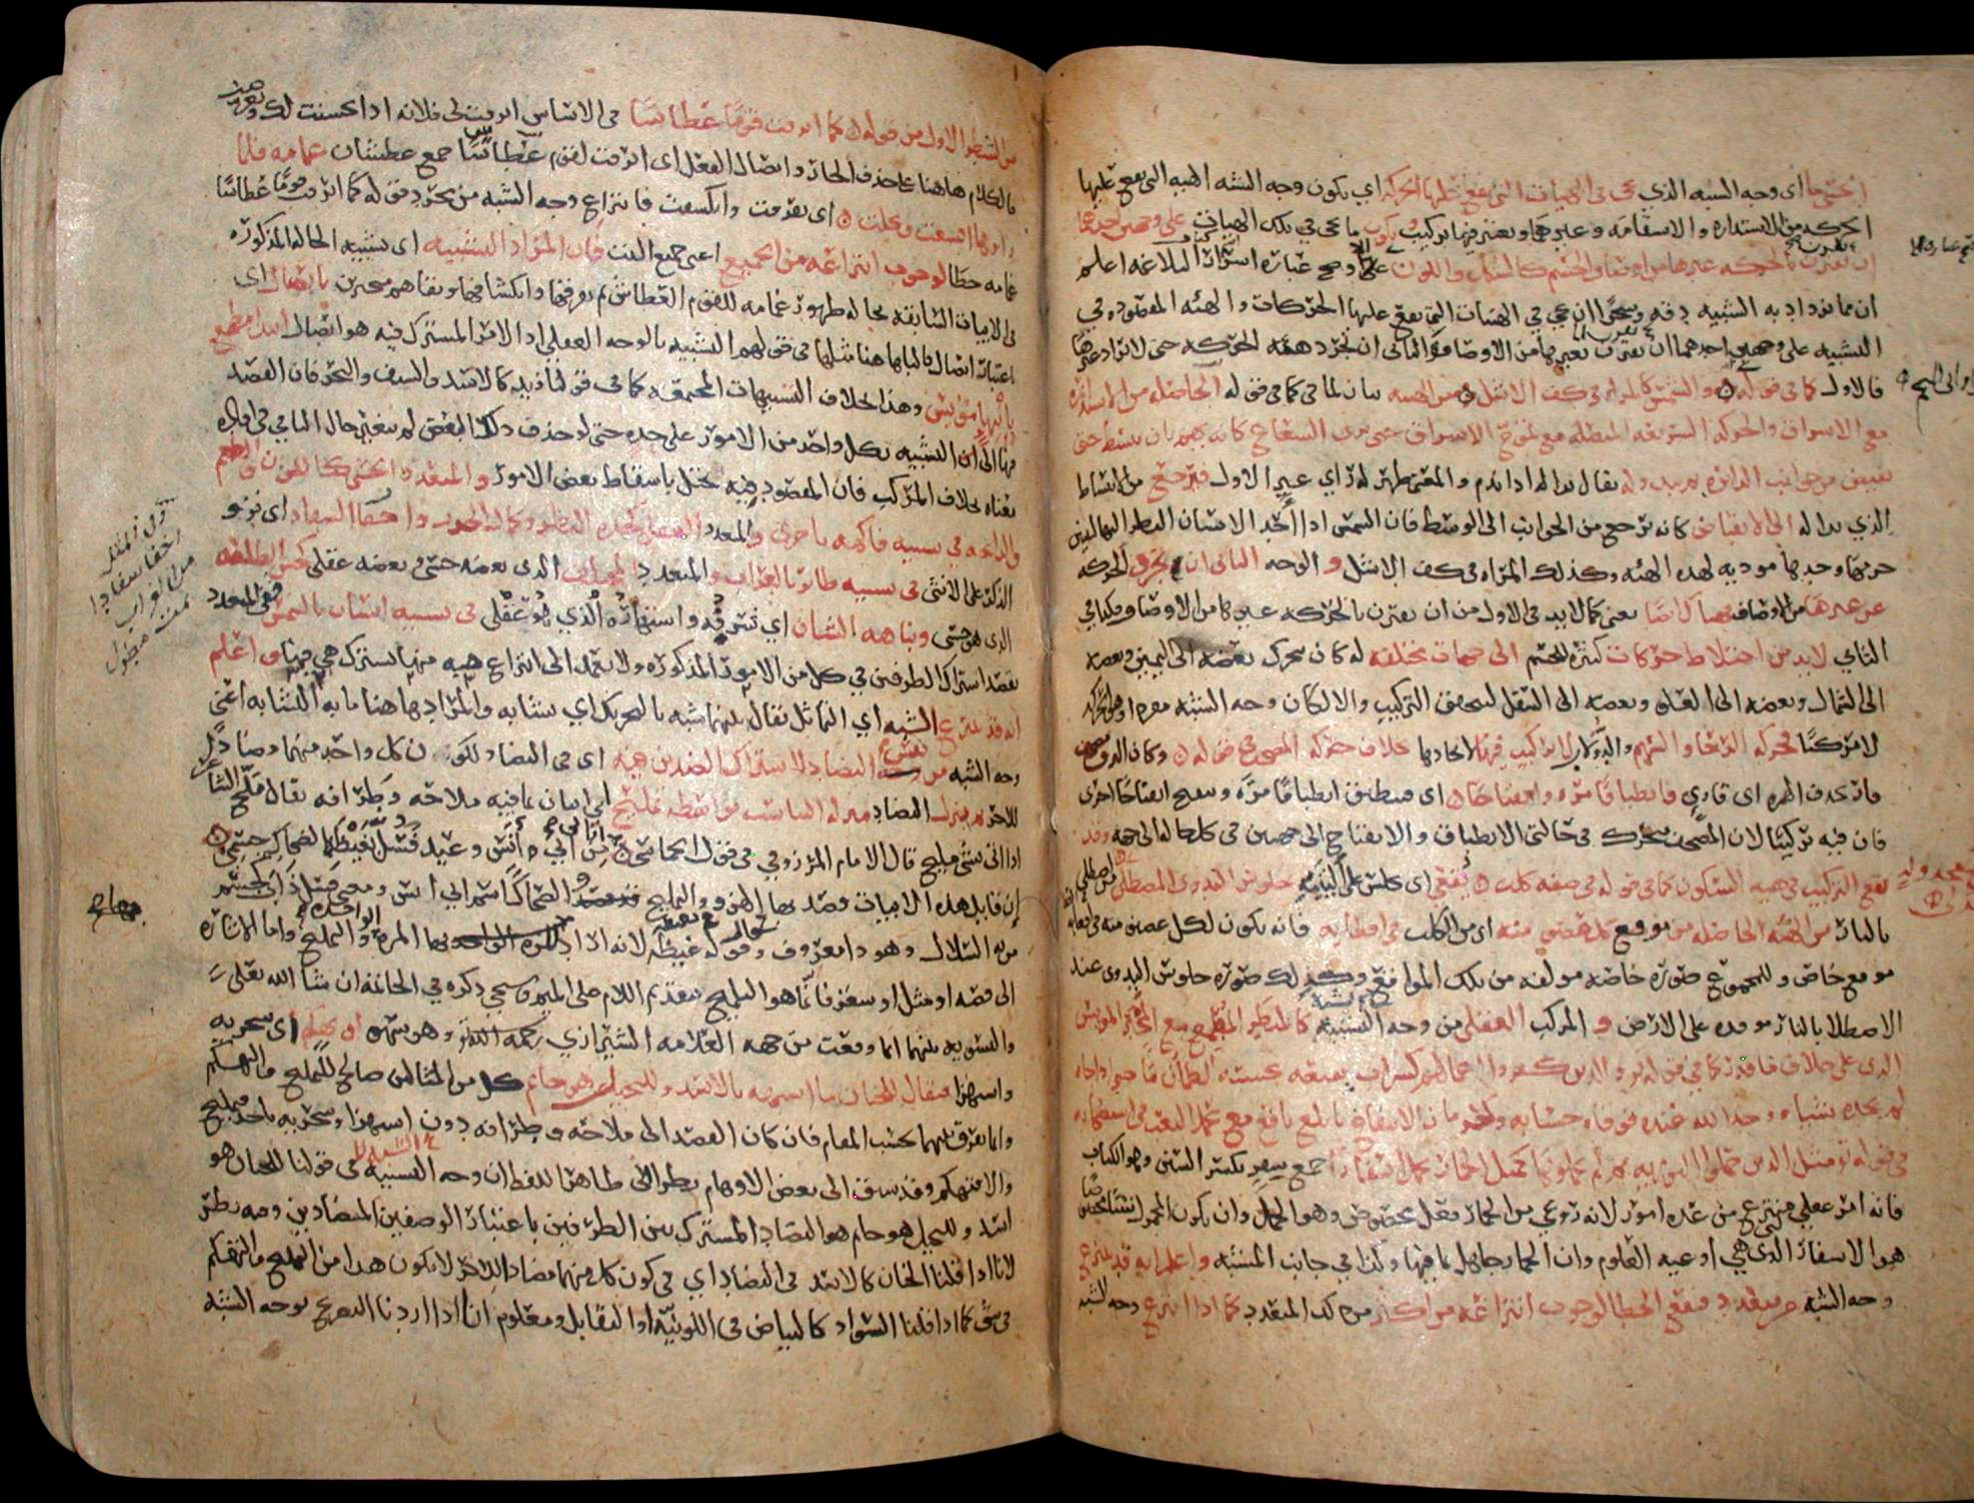 الحسي ما اى وجه الشبه الذي يجى فى الهيات التى يقع عليها الحركة اي يكون وجه الشبه الهيه التى يقع عليها
الحركه من الاستداره والاستقامه وغيرهما ويعتبر فيها تركيب ويكون ما يجى في تلك الهيات على وجهين احدهما
ان يقترن بالحركه غيرها من اوصاف الجسم كالشكل واللون وضح عباره اسرار البلاغه اعلم
ان مما يزداد به التشبيه دقه وسحرًا ان يجي في الهيئات التى يقع عليها الحركات والهئه المقصوده في
التشبيه على وجهين احدهما ان يقترن بغيرها من الاوصاف والثانى ان تجرد هيئه الحركه حتى لا يزاد غيرها
فالاول كما فى قوله والشمس كالمراه فى كف الاشل من الهيه بيان لما فى كما فى قوله الحاصله من الاستداره
مع الاشراق والحركه السريعه المتصله مع تموج الاشراق حتى يرى الشعاع كانه يهم بان ينبسط حتى
يفيض من جوانب الدائره ثم يبدو له يقال بدا له اذا ندم والمعنى ظهر له راي غير الاول فيرجع من الانبساط
الذي بدا له الى الانقباض كانه يرجع من الجوانب الى الوسط فان الشمس اذا احد الانسان النظر اليها ليتبين
جرمها وجدها موديه لهذه الهئه وكذلك المراه فى كف الاشل والوجه الثانى ان تجرد الحركه
عن غيرها من الاوصاف فهناك ايضا يعنى كما لا بد فى الاول من ان يقترن بالحركه غيرها من الاوصاف فكذا في
الثاني لا بد من اختلاط حركات كثيره للجسم الى جهات مختلفه له كان يتحرك بعضه الى اليمين وبعضه
الى الشمال وبعضه الى العلو وبعضه الى السفل ليتحقق التركيب والا لكان وجه الشبه مفردا وهو الحركه
لا مركبًا فحركه الرحا والسهم والدولاب لا تركيب فيها لاتحادها بخلاف حركه المصحف فى قوله وكان البرق مصحف
قار بحذف الهمزه اى قارئ فانطباقًا مره وانفتاحا اى فينطبق انطباقًا مرَّه وينفتح انفتاحًا اخرى
فان فيه تركيبًا لان المصحف يتحرك فى حالتى الانطباق والانفتاح الى جهتين فى كل حاله الى جهه وقد
يقع التركيب فى هيه السكون كما فى قوله فى صفه كلب يُقعي اى يجلس على اليتيه جلوس البدوى المصطلى
بالنار من الهيئه الحاصله من موقع كل عضو منه اى من الكلب فى اقعائه فانه يكون لكل عضو منه فى اقعائه
موقع خاص وللمجموع صوره خاصه مولفه من تلك المواقع وكذلك صوره جلوس البدوى عند
الاصطلا بالنار موقده على الارض والمركب العقلى من وجه الشبه كالمنظر المطمع مع المخبر المويس
الذى على خلاف ما قدر كما في قوله تع والذين كفروا اعمالهم كسراب بقيعه يحسبه الظمان ماء حتى اذا جاه
لم يجده شياء ووجد الله عنده فوفاه حسابه وكحرمان الانتفاع بابلغ نافع مع تحمل التعب فى استصحابه
فى قوله تع مثل الذين حملوا التوريه ثم لم يحملوها كمثل الحمار يحمل اسفارا جمع سِفرٍ بكسر السين وهو الكتاب
فانه امر عقلي منتزع من عدّه امور لانه روعي من الحمار فعل مخصوص وهو الحمل وان يكون المحمول شيئا مخصوصا
هو الاسفار الذى هي اوعيه العلوم وان الحمار جاهل بما فيها وكذا في جانب المشبه واعلم انه قد ينتزع
وجه الشبه من متعدد فيقع الخطا لوجوب انتزاعه من اكثر من ذلك المتعدد كما اذا انتزع وجه الشبه
من الشطر الاول من قوله كما ابرقت قومًا عطاشًا فى الاساس ابرقت لى فلانه اذا تحسنت لك وتعرضت
فالكلام هاهنا على حذف الجار وايصال الفعل اى ابرقت لقوم عطاشًا جمع عطشان غمامه فلما
راوها اقشعت وتجلت اى تفرقت وانكشفت فانتزاع وجه الشبه من مجرد قوله كما ابرقت قومًا عطاشًا
غمامه خطا لوجوب انتزاعه من الجميع اعنى جميع البيت فان المراد التشبيه اى تشبيه الحاله المذكوره
فى الابيات السابقه بحاله ظهور غمامه للقوم العطاش ثم تفرقها وانكشافها وبقاهم متحيرين باتصال اى
باعتبار اتصال فالباء هاهنا مثلها فى قولهم التشبيه بالوجه العقلى اذ الامر المشترك فيه هو اتصال ابتداء مطمع
بانتهاء مؤيس وهذا بخلاف التشبيهات المجتمعه كما فى قولنا زيد كالاسد والسيف والبحر فان القصد
فيها الى التشبيه بكل واحد من الامور على حده حتى لو حذف ذلك البعض لم يتغير حال الباقي في افاده
معناه بخلاف المركب فان المقصود منه يختل باسقاط بعض الامور والمتعدد الحسي كاللون والطعم
والرائحه في تشبيه فاكهه باخرى والمتعدد العقلى كحده النظر وكمال الحذر واخفا السفاد اى نزو
الذكر على الانثى فى تشبيه طائر بالغراب والمتعدد المختلف الذى بعضه حسى وبعضه عقلى كحسن الطلعه
الذى هو حسى ونباهه الشان اي شرفه واشتهاره الذي هو عقلى فى تشبيه انسان بالشمس ففى المتعدد
يقصد اشتراك الطرفين في كل من الامور المذكوره ولا يعمد الى انتزاع هيه منها تشترك هي فيها واعلم
انه قد ينتزع الشبه اي التماثل يقال بينهما شبه بالتحريك اي تشابه والمراد هاهنا ما به التشابه اعنى
وجه الشبه من نفس التضاد لاشتراك الضدين فيه اى فى التضاد لكون كل واحد منهما مضادًا
للاخر ثم ينزل التضاد منزله التناسب بواسطه تمليح اى اتيان بما فيه ملاحه وظرافه يقال ملّح الشاعر
اذا اتى بشى مليح قال الامام المرزوقي في قول الحماسي اتانى من ابي انس وعيد فسل تغيظ الضحاك جسمى
ان قايل هذه الابيات قصد بها الهزو والتمليح والضحاك اسم ابي انس
الى قصه او مثل او شعر فانما هو التلميح بتقديم اللام على الميم وسيجي ذكره في الخاتمه ان شا الله تعلى
والتسويه بينهما انما وقعت من جهه العلامه الشيرازي رحمه الله وهو سهو او تهكم اى سخريه
واستهزا فيقال للجبان ما اشبهه بالاسد وللبخيل هو حاتم كل من المثالين صالح للتمليح والتهكم
وانما يفرق بينهما بحسب المقام فان كان القصد الى ملاحه وظرافه دون استهزا وسخريه باحد فتمليح
والا فتهكم وقد سبق الى بعض الاوهام نظرا الى ظاهر اللفظ ان وجه التشبيه فى قولنا للجبان هو
اسد وللبخيل هو حاتم هو التضاد المشترك بين الطرفين باعتبار الوصفين المتضادين وفيه نظر
لانا اذا قلنا الجبان كالاسد فى التضاد اي في كون كل منهما مضاد للاخر لا يكون هذا من التمليح والتهكم
فى شى كما اذا قلنا السواد كالبياض فى اللونيّه او التقابل ومعلوم انا اذا اردنا التصريح بوجه الشبه